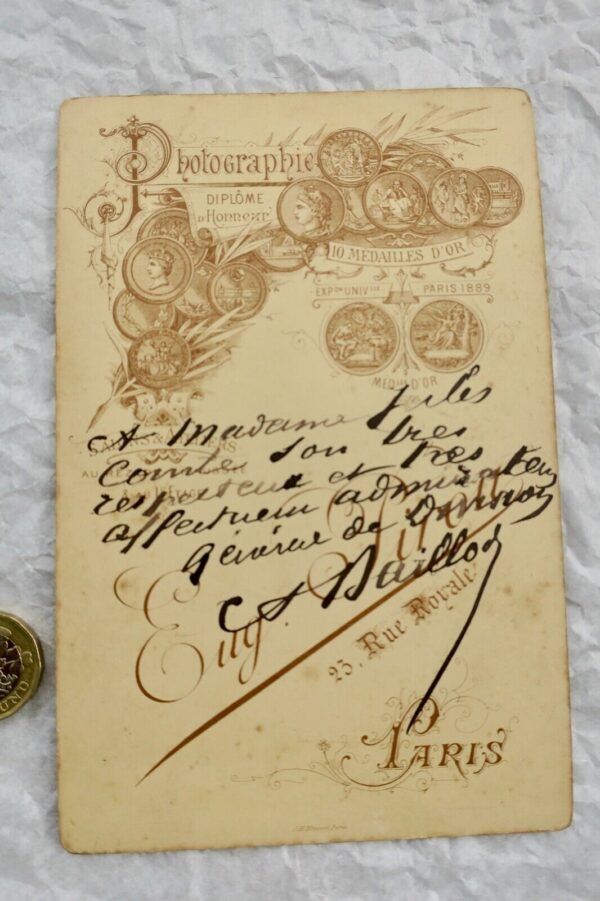 Photographie
DIPLÔME
D'HONNEUR
10 MEDAILLES D'OR
EXPON UNIVLLE PARIS 1889
D'OR
A Madame Jules
Comte son très
respectueux et très
affectueux admirateur
Général de Division
Eug. Pirou
23, Rue Royale
PARIS